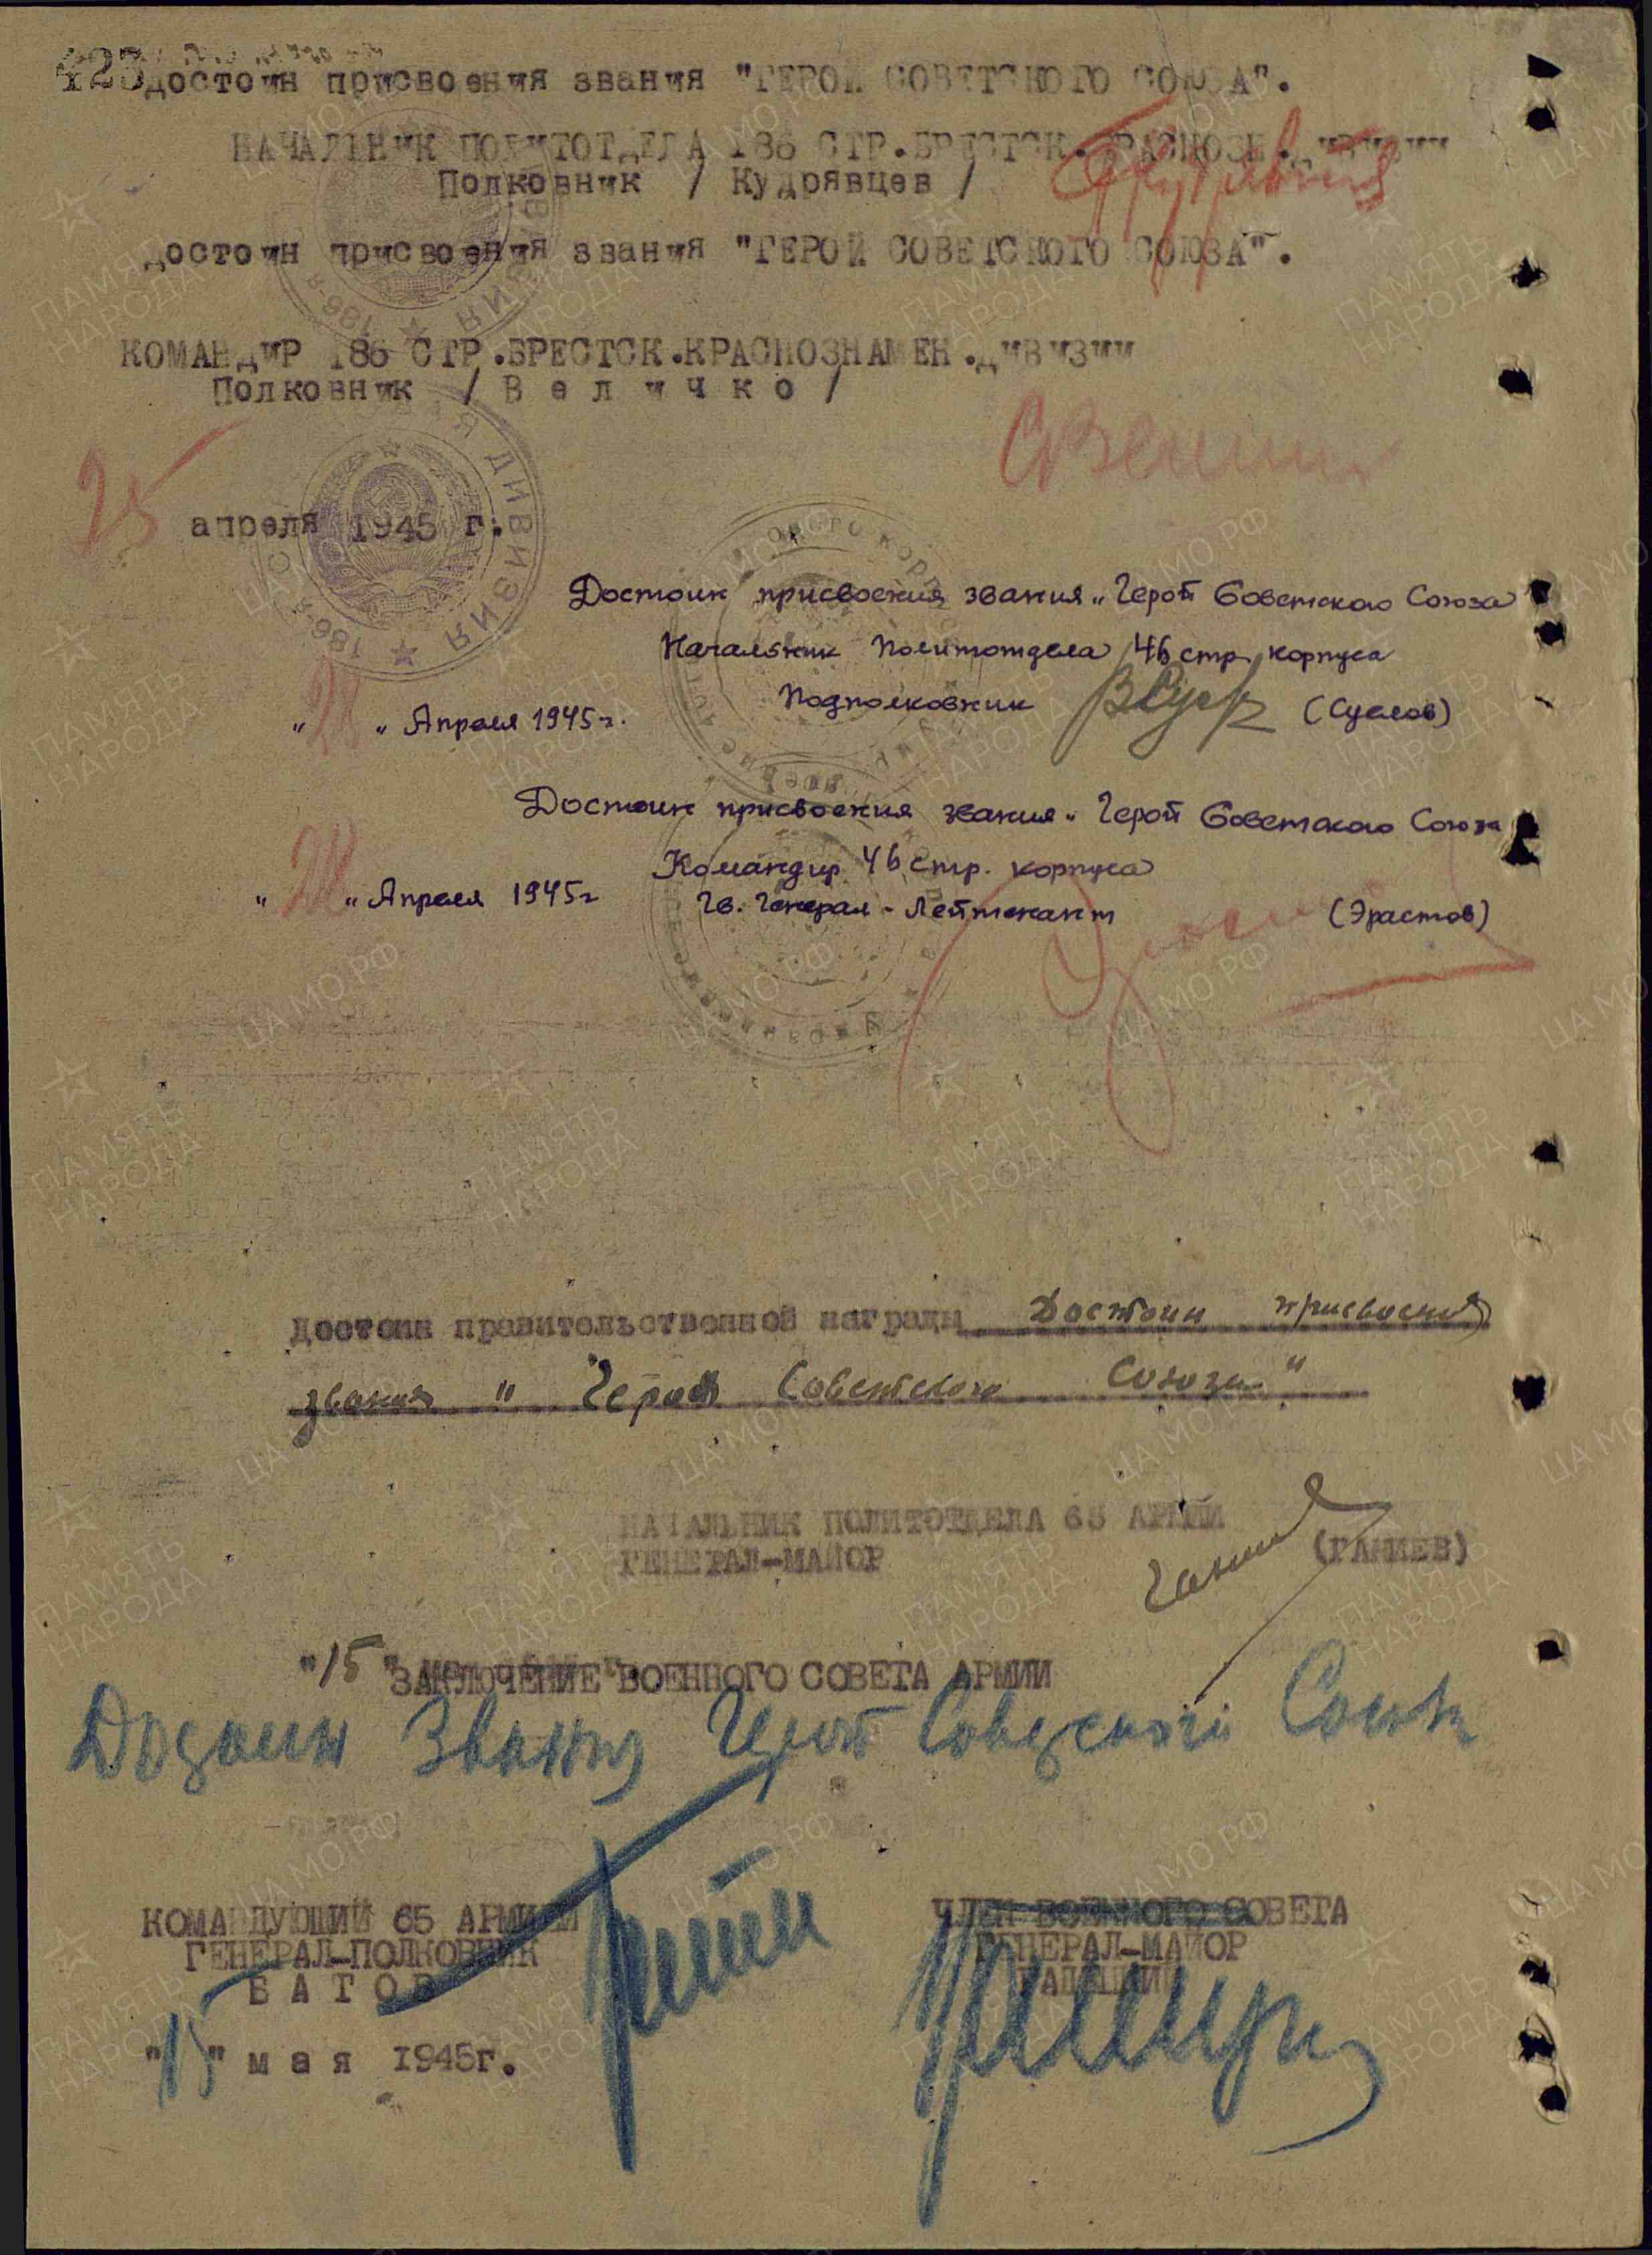 423
Достоин присвоения звания "ГЕРОЙ СОВЕТСКОГО СОЮЗА".
НАЧАЛЬНИК ПОЛИТОТДЕЛА 186 СТР.БРЕСТСК.КРАСНОЗН.ДИВИЗИИ
Полковник / Кудрявцев /
Достоин присвоения звания "ГЕРОЙ СОВЕТСКОГО СОЮЗА".
КОМАНДИР 186 СТР.БРЕСТСК.КРАСНОЗНАМЕН.ДИВИЗИИ
Полковник / В е л и ч к о /
25
апреля 1945 г.
Достоин присвоения звания "Герой Советского Союза"
Начальник Политотдела 46 стр. корпуса
Подполковник (Суслов)
"28" Апреля 1945г.
Достоин присвоения звания "Герой Советского Союза
Командир 46 стр. корпуса
"28" Апреля 1945г
Гв. Генерал-Лейтенант (Эрастов)
Достоин правительственной награды Достоин присвоения
звания "Герой Советского Союза"
НАЧАЛЬНИК ПОЛИТОТДЕЛА 65 АРМИИ
ГЕНЕРАЛ-МАЙОР (ГАНИЕВ)
"15"
ЗАКЛЮЧЕНИЕ ВОЕННОГО СОВЕТА АРМИИ
Достоин Звания Герой Советского Союза
КОМАНДУЮЩИЙ 65 АРМИЕЙ
ГЕНЕРАЛ-ПОЛКОВНИК
Б А Т О В
ЧЛЕН ВОЕННОГО СОВЕТА
ГЕНЕРАЛ-МАЙОР
РАДЕЦКИЙ
"15" м а я 1945г.